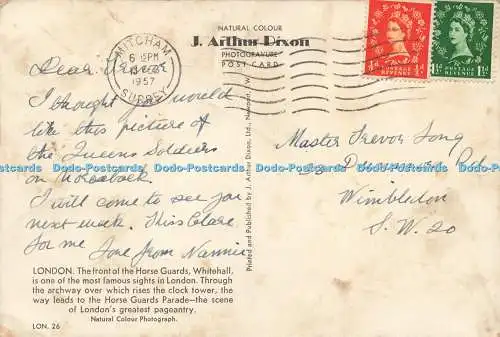 NATURAL COLOUR
J. Arthur Dixon
PHOTOGRAVURE
POST CARD
MITCHAM
6 PM
1957
SURREY
POSTAGE
REVENUE
½d
POSTAGE
REVENUE
1½d
Dear Trevor
I thought you would
like this picture of
the Queens Soldiers
on Horseback
I will come to see you
next week. Kiss Clare
for me
love from Nannie
Master Trevor Long
Rd
Wimbledon
S.W. 20
Printed and Published by J. Arthur Dixon, Ltd., Newport,
LONDON. The front of the Horse Guards, Whitehall,
is one of the most famous sights in London. Through
the archway over which rises the clock tower, the
way leads to the Horse Guards Parade—the scene
of London's greatest pageantry.
Natural Colour Photograph.
LON. 26
Dodo-Postcards Dodo-Postcards Dodo-Postcards Dodo-Postcards